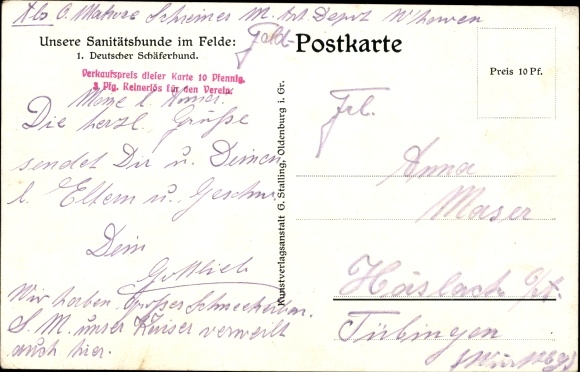 O. Matrose Schreiner M. Art. Depot W'haven
Unsere Sanitätshunde im Felde:
1. Deutscher Schäferhund.
Feld-Postkarte
Preis 10 Pf.
Verkaufspreis dieser Karte 10 Pfennig.
3 Pfg. Reinerlös für den Verein.
Die herzl. Grüße
sendet Dir u. Deinen
l. Eltern u. Geschw.
Dein
Gottlieb
Wir haben
S. M. unser Kaiser verweilt
auch hier.
Kunstverlagsanstalt G. Stalling, Oldenburg i. Gr.
Frl.
Anna
Maser
Häslach
Tübingen